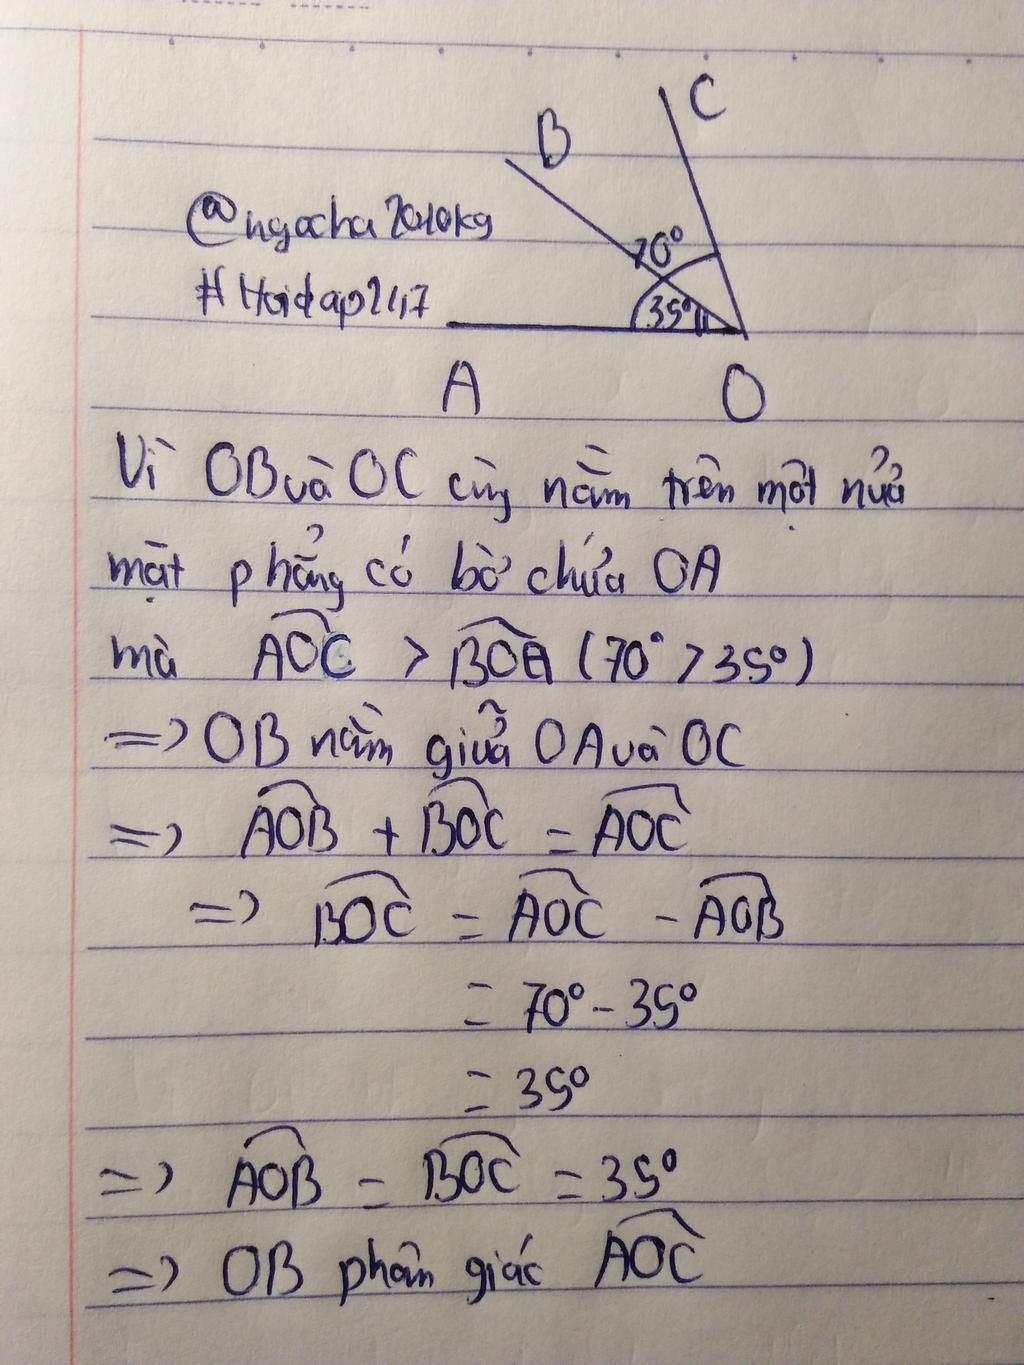 C
B
@ngocha2010kg
70°
#Hoidap247
35°
A
O
Vì OB và OC cùng nằm trên một nửa
mặt phẳng có bờ chứa OA
mà AOC > BOA (70° > 35°)
=> OB nằm giữa OA và OC
=> AOB + BOC = AOC
=> BOC = AOC - AOB
= 70° - 35°
= 35°
=> AOB = BOC = 35°
=> OB phân giác AOC